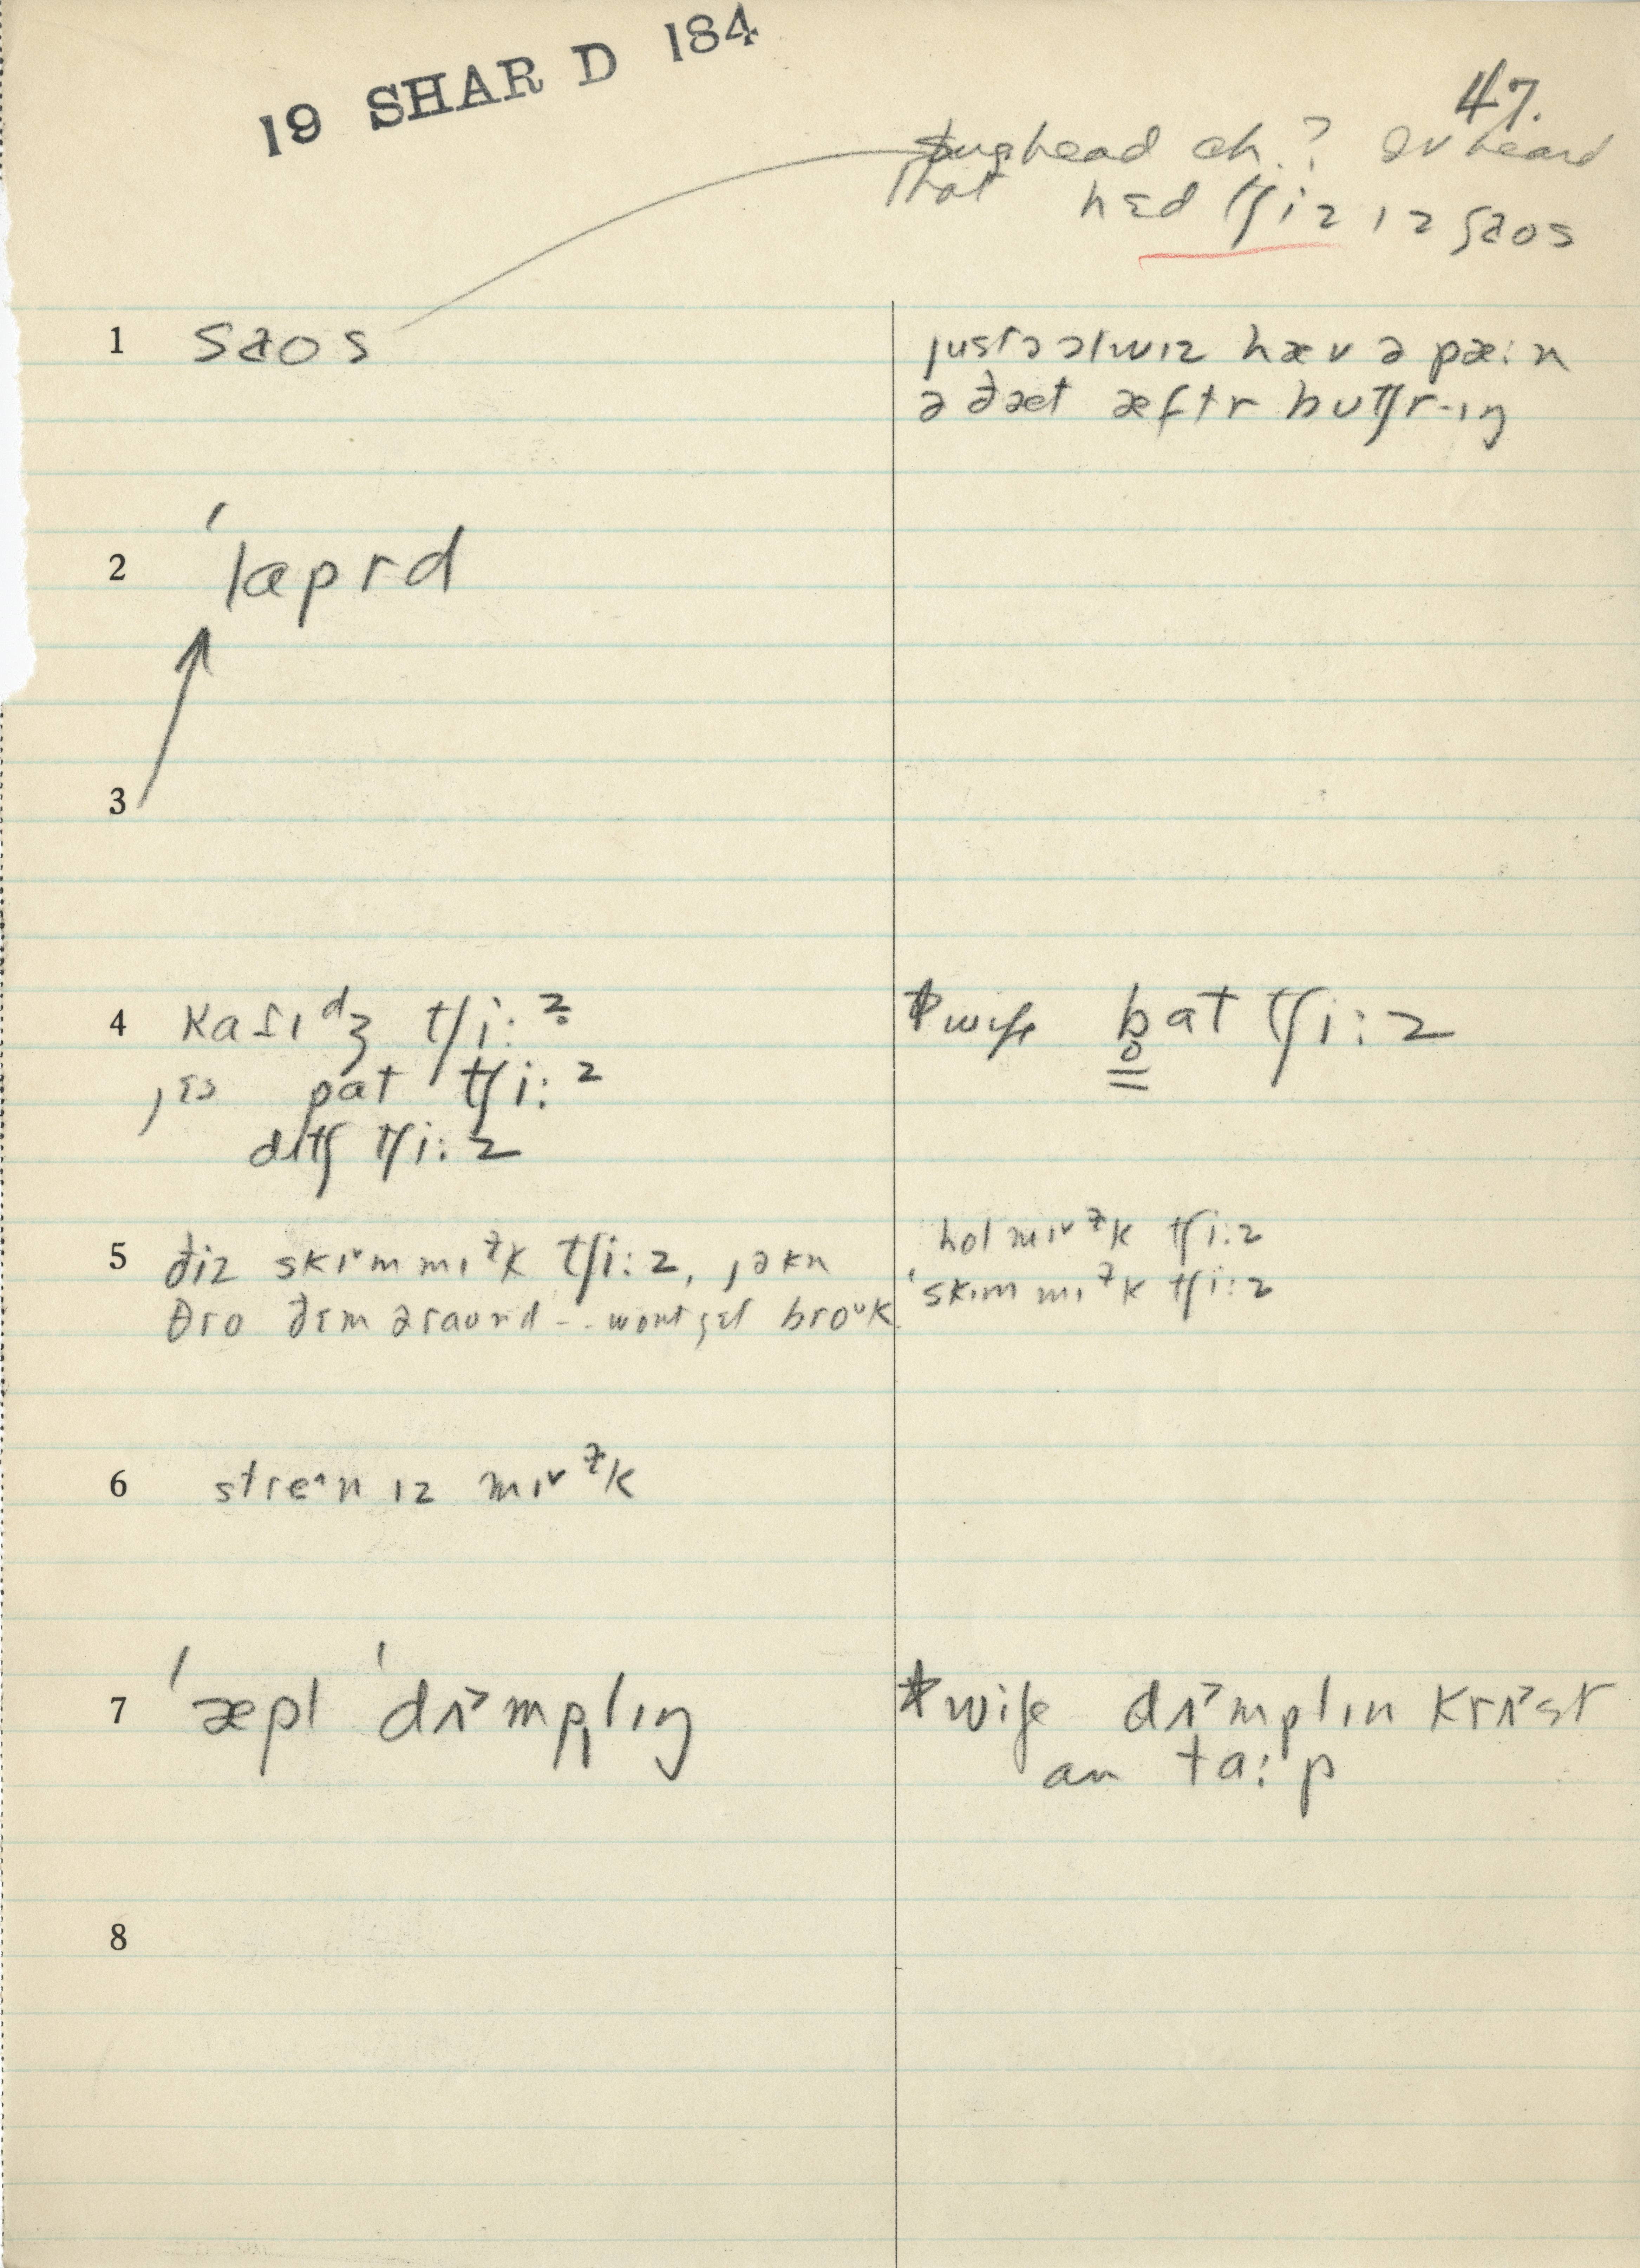 19 SHAR D 184
47.
head ch.? Iv heard
that hɛd tʃiz ɪz saos
1 saos
justə əlwɪz hæv ə pæ:n
ə ðæt æftr butʃr-ɪŋ
2 ˈlaprd
3
4 kaɾɪᵈʒ tʃi:z̥
pat tʃi:z
dɪtʃ tʃi:z
*wife b̥at tʃi:z
5 ðiz skɪᵛm mɪᶻk tʃi:z, jəkn
θro ðɛm əraund -- wont gɛt broᵘk
hol mɪᵛᶻk tʃi:z
ˈskɪm mɪᶻk tʃi:z
6 streˆn ɪz mɪᵛᶻk
7 ˈæpl ˈdʌ˃mplɪŋ
*wife dʌ˃mplɪn krʌ˃st
an ta:p
8